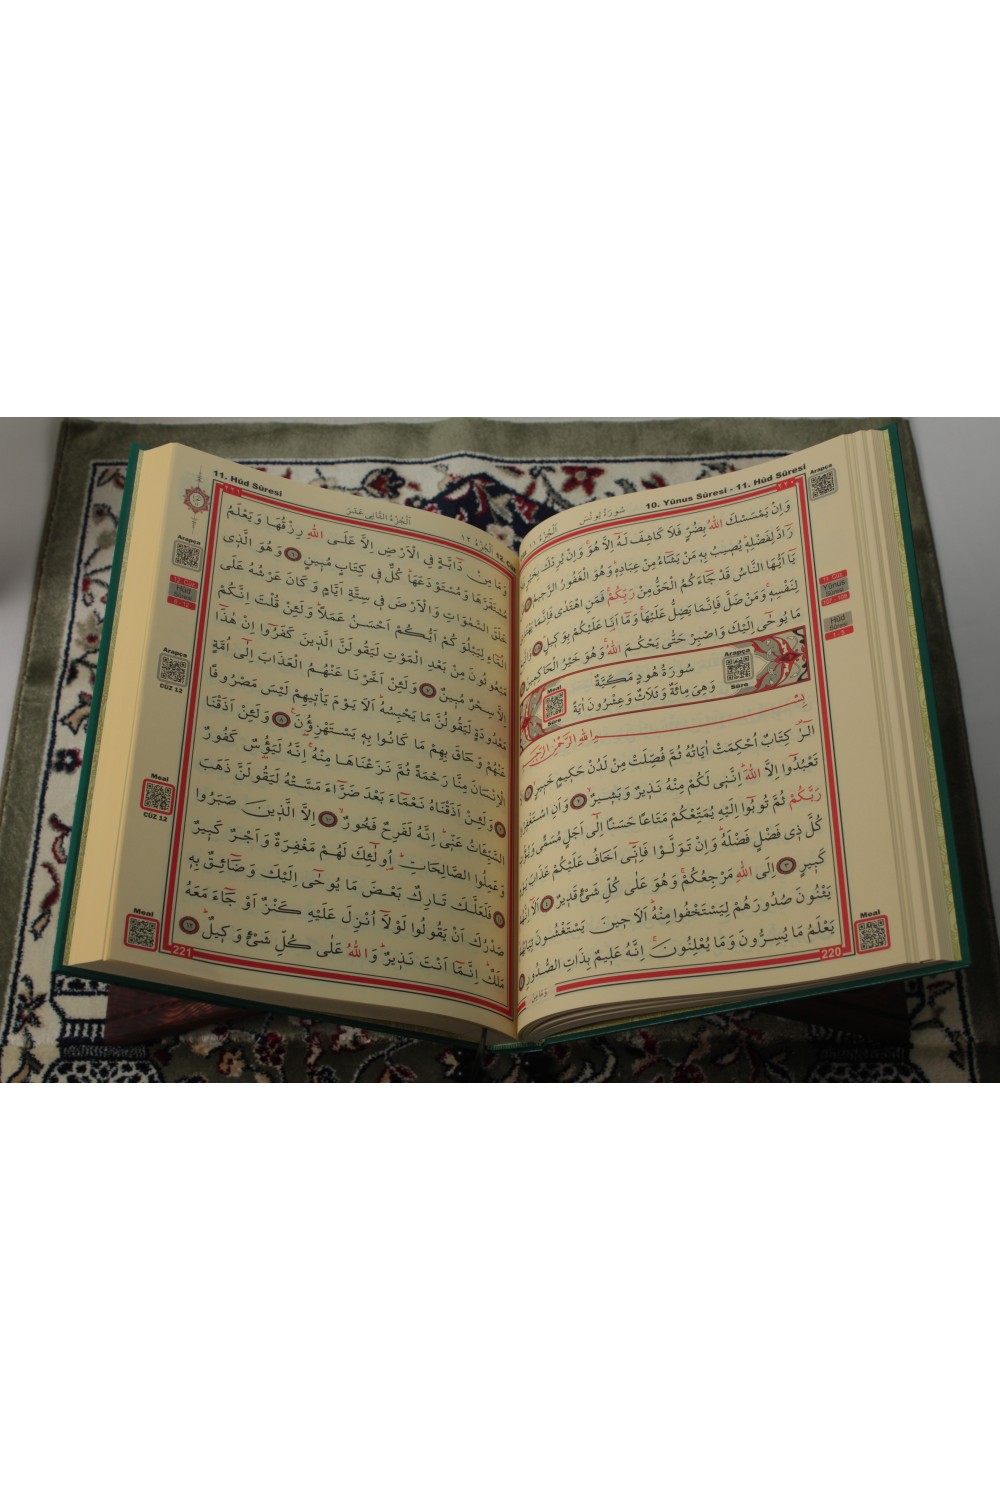 10. Yûnus Sûresi - 11. Hûd Sûresi
سُورَةُ يُونُسَ
اَلْجُزْءُ ١١
٢٢٠
Arapça
وَاِنْ يَمْسَسْكَ اللّٰهُ بِضُرٍّ فَلَا كَاشِفَ لَهُٓ اِلَّا هُوَۚ وَاِنْ يُرِدْكَ بِخَيْرٍ
رَٓادَّ لِفَضْلِه۪ۜ يُص۪يبُ بِه۪ مَنْ يَشَٓاءُ مِنْ عِبَادِه۪ۜ وَهُوَ الْغَفُورُ الرَّح۪يمُ
يَٓا اَيُّهَا النَّاسُ قَدْ جَٓاءَكُمُ الْحَقُّ مِنْ رَبِّكُمْۚ فَمَنِ اهْتَدٰى فَاِنَّمَا
لِنَفْسِه۪ۚ وَمَنْ ضَلَّ فَاِنَّمَا يَضِلُّ عَلَيْهَاۚ وَمَٓا اَنَا۬ عَلَيْكُمْ بِوَك۪يلٍۜ
مَا يُوحٰٓى اِلَيْكَ وَاصْبِرْ حَتّٰى يَحْكُمَ اللّٰهُۚ وَهُوَ خَيْرُ الْحَاكِم۪ينَ
11. Cüz
Yûnus
Sûresi
107 - 109
Hûd
Sûresi
1 - 5
Arapça
Sûre
سُورَةُ هُودٍ مَكِّيَّةٌ
وَهِيَ مِائَةٌ وَثَلَاثٌ وَعِشْرُونَ اٰيَةً
Meal
Sûre
بِسْمِ اللّٰهِ الرَّحْمٰنِ الرَّح۪يمِ
الٓرٰ۠ كِتَابٌ اُحْكِمَتْ اٰيَاتُهُ ثُمَّ فُصِّلَتْ مِنْ لَدُنْ حَك۪يمٍ خَب۪يرٍۙ
تَعْبُدُٓوا اِلَّا اللّٰهَۜ اِنَّن۪ي لَكُمْ مِنْهُ نَذ۪يرٌ وَبَش۪يرٌۙ ﴿٢﴾ وَاَنِ اسْتَغْفِرُوا
رَبَّكُمْ ثُمَّ تُوبُٓوا اِلَيْهِ يُمَتِّعْكُمْ مَتَاعًا حَسَنًا اِلٰٓى اَجَلٍ مُسَمًّى وَيُؤْتِ
كُلَّ ذ۪ي فَضْلٍ فَضْلَهُۜ وَاِنْ تَوَلَّوْا فَاِنّ۪ٓي اَخَافُ عَلَيْكُمْ عَذَابَ يَوْمٍ
كَب۪يرٍ ﴿٣﴾ اِلَى اللّٰهِ مَرْجِعُكُمْۚ وَهُوَ عَلٰى كُلِّ شَيْءٍ قَد۪يرٌ ﴿٤﴾ اَلَٓا اِنَّهُمْ
يَثْنُونَ صُدُورَهُمْ لِيَسْتَخْفُوا مِنْهُۜ اَلَا ح۪ينَ يَسْتَغْشُونَ ثِيَابَهُمْۙ
يَعْلَمُ مَا يُسِرُّونَ وَمَا يُعْلِنُونَۚ اِنَّهُ عَل۪يمٌ بِذَاتِ الصُّدُورِ
Meal
220
وَمَا مِنْ
11. Hûd Sûresi
٢٢١
اَلْجُزْءُ الثَّانِي عَشَرَ
اَلْجُزْءُ ١٢
وَمَا مِنْ دَٓابَّةٍ فِي الْاَرْضِ اِلَّا عَلَى اللّٰهِ رِزْقُهَا وَيَعْلَمُ
مُسْتَقَرَّهَا وَمُسْتَوْدَعَهَاۜ كُلٌّ ف۪ي كِتَابٍ مُب۪ينٍ ﴿٦﴾ وَهُوَ الَّذ۪ي
خَلَقَ السَّمٰوَاتِ وَالْاَرْضَ ف۪ي سِتَّةِ اَيَّامٍ وَكَانَ عَرْشُهُ عَلَى
الْمَٓاءِ لِيَبْلُوَكُمْ اَيُّكُمْ اَحْسَنُ عَمَلًاۜ وَلَئِنْ قُلْتَ اِنَّكُمْ
مَبْعُوثُونَ مِنْ بَعْدِ الْمَوْتِ لَيَقُولَنَّ الَّذ۪ينَ كَفَرُٓوا اِنْ هٰذَٓا
اِلَّا سِحْرٌ مُب۪ينٌ ﴿٧﴾ وَلَئِنْ اَخَّرْنَا عَنْهُمُ الْعَذَابَ اِلٰٓى اُمَّةٍ
مَعْدُودَةٍ لَيَقُولُنَّ مَا يَحْبِسُهُۜ اَلَا يَوْمَ يَأْت۪يهِمْ لَيْسَ مَصْرُوفًا
عَنْهُمْ وَحَاقَ بِهِمْ مَا كَانُوا بِه۪ يَسْتَهْزِؤُ۫نَ۟ ﴿٨﴾ وَلَئِنْ اَذَقْنَا
الْاِنْسَانَ مِنَّا رَحْمَةً ثُمَّ نَزَعْنَاهَا مِنْهُۚ اِنَّهُ لَيَؤُ۫سٌ كَفُورٌ
﴿٩﴾ وَلَئِنْ اَذَقْنَاهُ نَعْمَٓاءَ بَعْدَ ضَرَّٓاءَ مَسَّتْهُ لَيَقُولَنَّ ذَهَبَ
السَّيِّـَٔاتُ عَنّ۪يۜ اِنَّهُ لَفَرِحٌ فَخُورٌۙ ﴿١٠﴾ اِلَّا الَّذ۪ينَ صَبَرُوا
وَعَمِلُوا الصَّالِحَاتِۜ اُو۬لٰٓئِكَ لَهُمْ مَغْفِرَةٌ وَاَجْرٌ كَب۪يرٌ
﴿١١﴾ فَلَعَلَّكَ تَارِكٌ بَعْضَ مَا يُوحٰٓى اِلَيْكَ وَضَٓائِقٌ بِه۪
صَدْرُكَ اَنْ يَقُولُوا لَوْلَٓا اُنْزِلَ عَلَيْهِ كَنْزٌ اَوْ جَٓاءَ مَعَهُ
مَلَكٌۜ اِنَّمَٓا اَنْتَ نَذ۪يرٌۜ وَاللّٰهُ عَلٰى كُلِّ شَيْءٍ وَك۪يلٌۜ ﴿١٢﴾
221
Arapça
12. Cüz
Hûd
Sûresi
6 - 12
Arapça
CÜZ 12
Meal
CÜZ 12
Meal